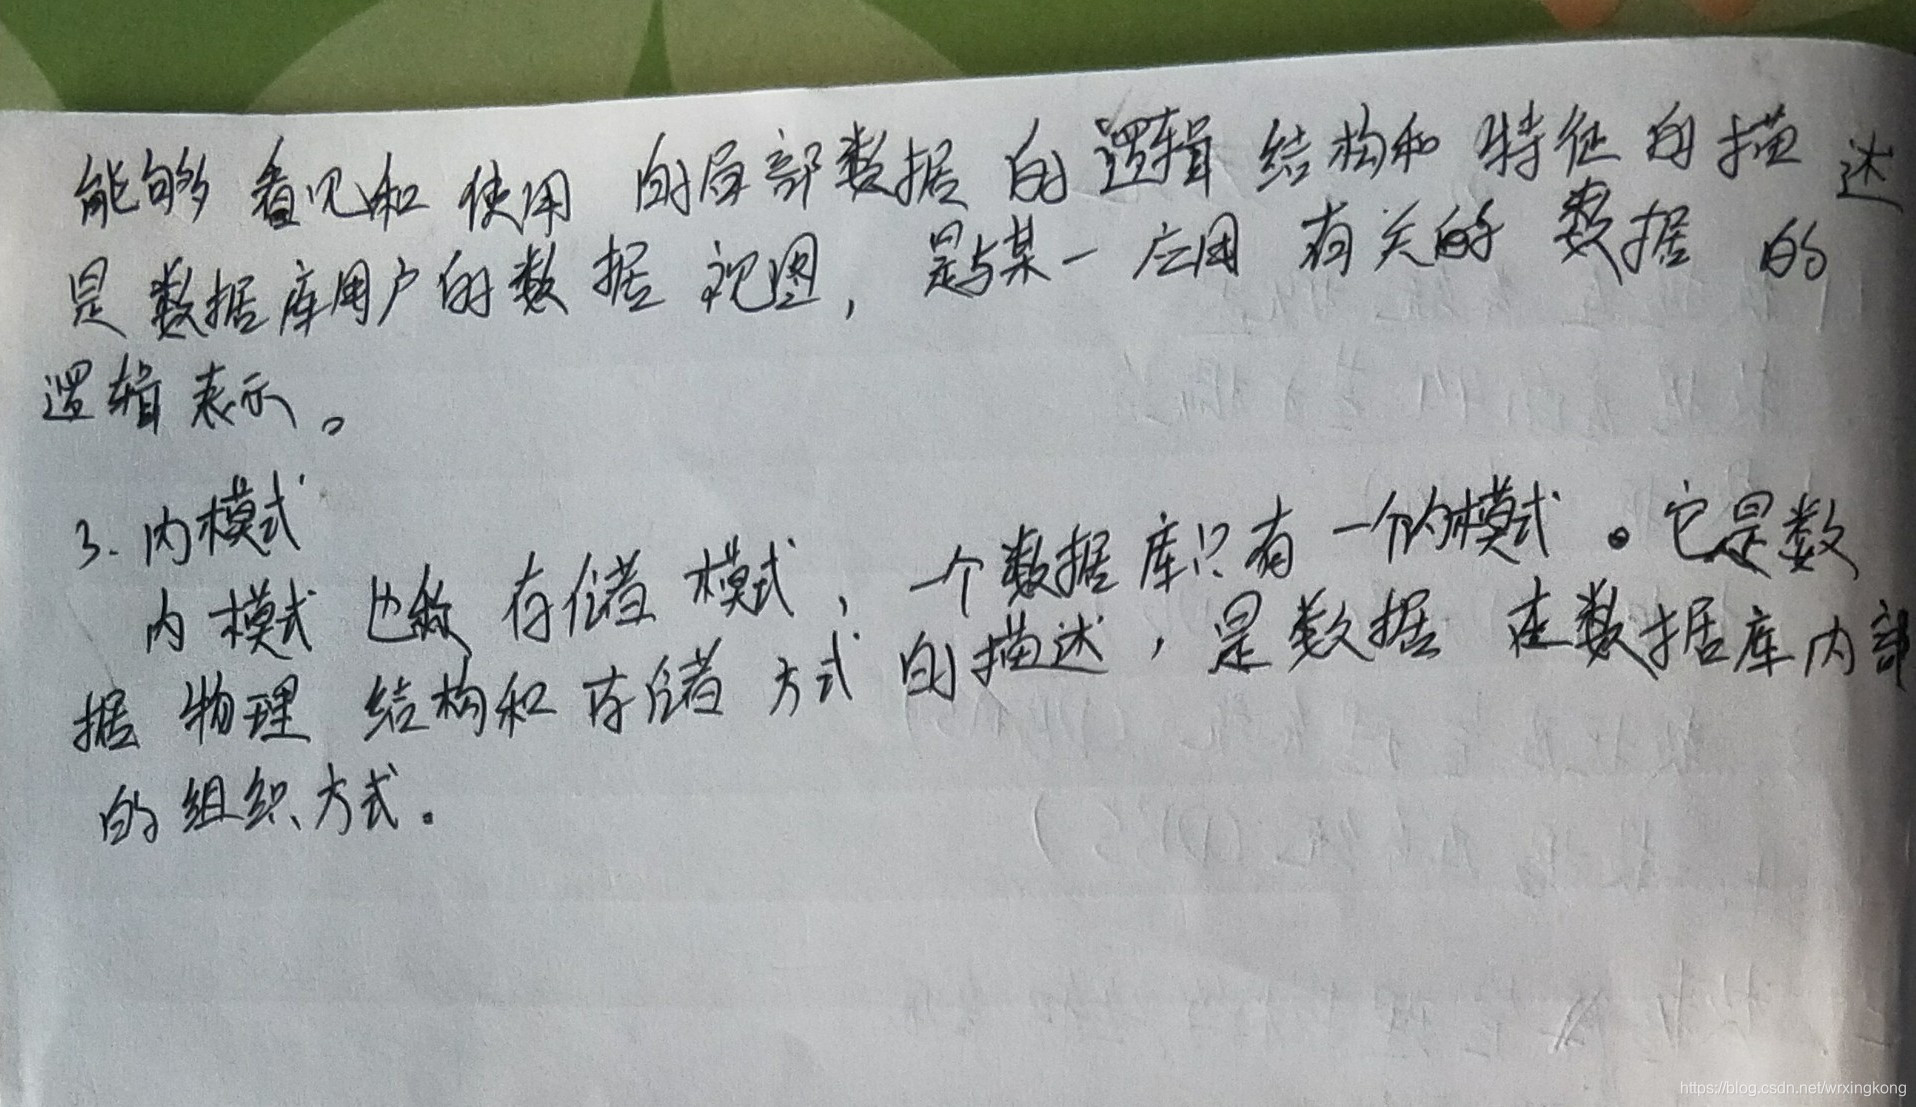 能够看见和使用的局部数据的逻辑结构和特征的描述
是数据库用户的数据视图，是与某一应用有关的数据的
逻辑表示。
3. 内模式
内模式也称存储模式，一个数据库只有一个内模式。它是数
据物理结构和存储方式的描述，是数据在数据库内部
的组织方式.
https://blog.csdn.net/wrxingkong